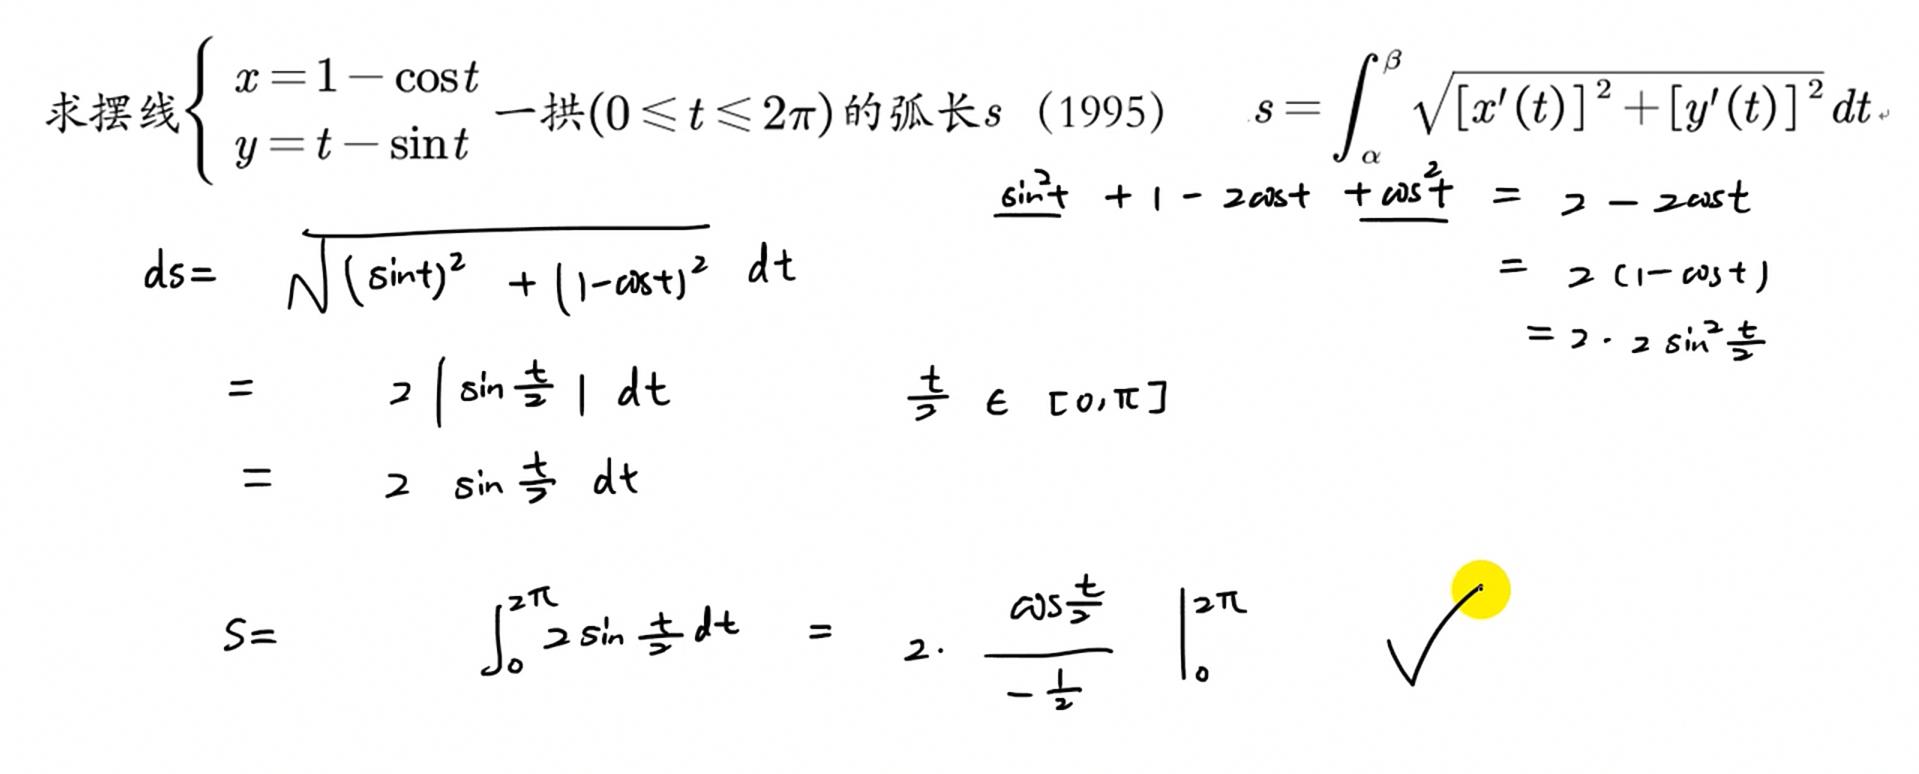 求摆线{x=1-cost y=t-sint 一拱(0⩽t⩽2π)的弧长s (1995) s=∫_α^β √([x′(t)]²+[y′(t)]²) dt
sin²t + 1 - 2cost + cos²t = 2 - 2cost
ds= √((sint)² + (1-cost)²) dt
= 2(1-cost)
= 2·2 sin² t/2
= 2|sin t/2| dt t/2 ∈ [0,π]
= 2 sin t/2 dt
S= ∫₀^2π 2 sin t/2 dt = 2· cos t/2 / -1/2 |₀^2π